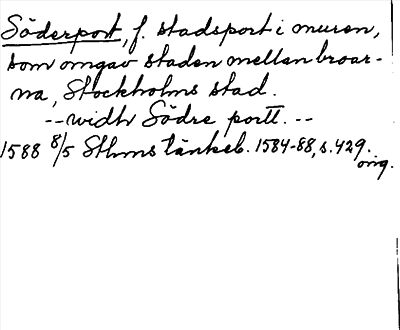 Söderport, f. stadsport i muren,
som omgav staden mellan broar-
na, Stockholms stad.
--widh Södre portt. --
1588 8/5 Sthms tänkeb. 1584-88, s. 429.
orig.